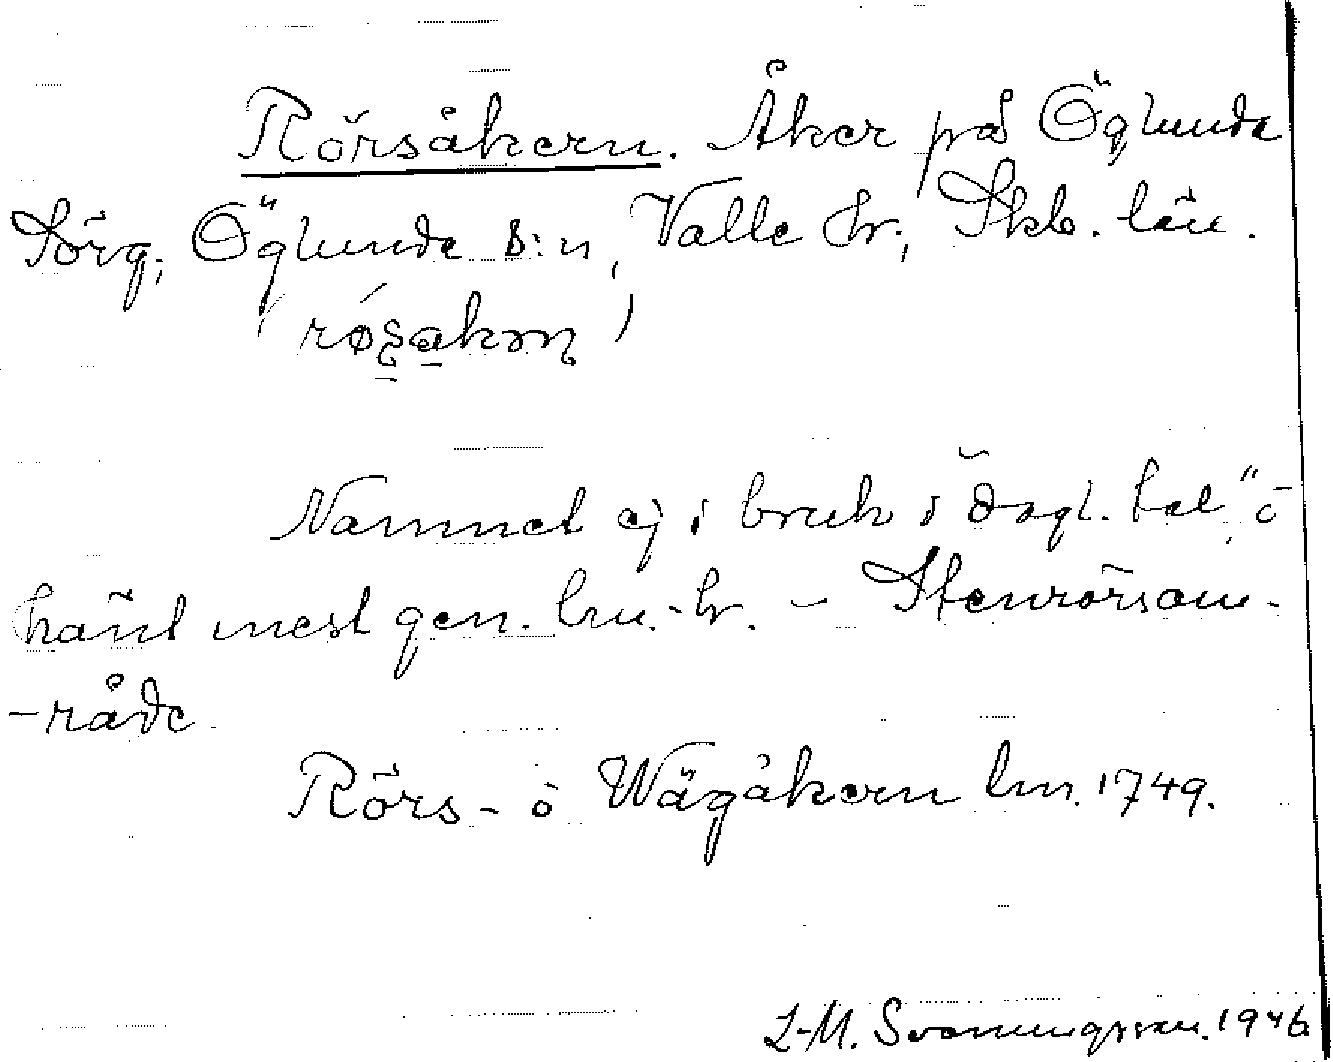 Rörsåkern. Åker på Öglunda
Sörg., Öglunda s:n, Valle hr., Skb. län.
Namnet ej i bruk i dagl. tal, o
känt mest gen. lm.-hr. - Stenrörsom-
-råde
Rörs- o Wägåkern lm. 1749.
L-M. Svanungsson. 1946